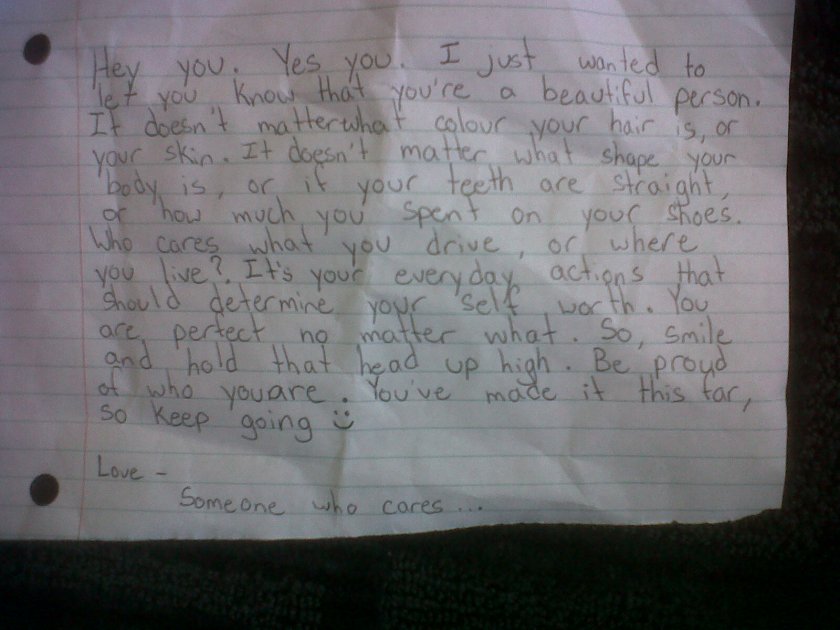 Hey you. Yes you. I just wanted to
let you know that you're a beautiful person.
It doesn't matter what colour your hair is, or
your skin. It doesn't matter what shape your
body is, or if your teeth are straight,
or how much you spent on your shoes.
Who cares what you drive, or where
you live? It's your everyday actions that
should determine your self worth. You
are perfect no matter what. So, smile
and hold that head up high. Be proud
of who you are. You've made it this far,
so keep going :)
Love -
Someone who cares...